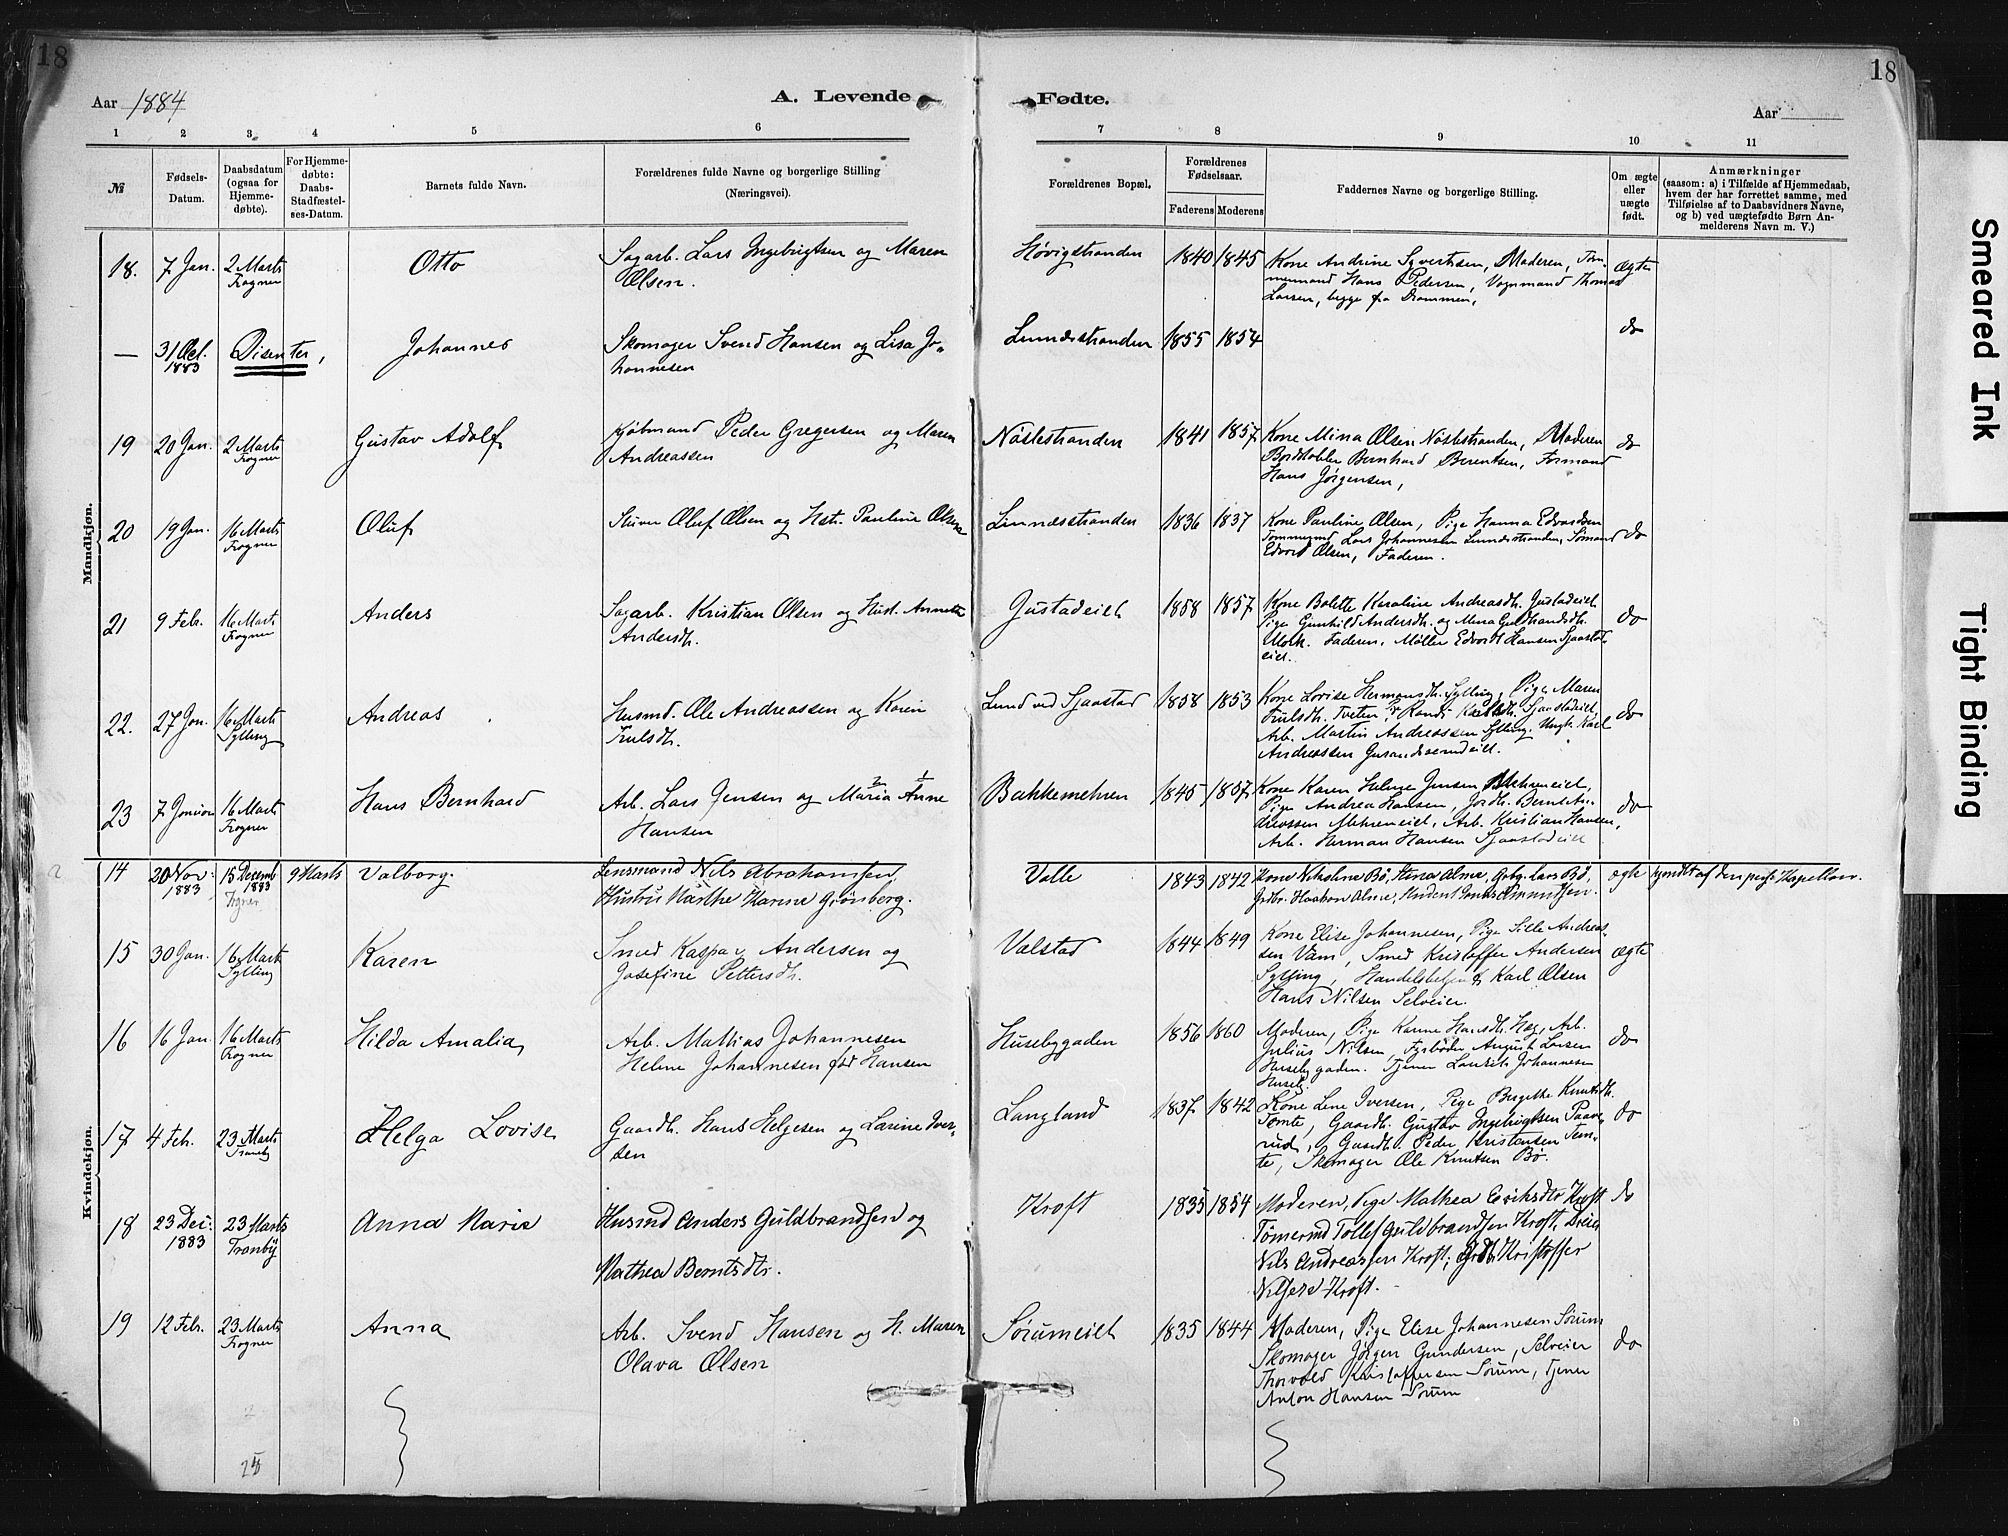 18
18
Aar 1884
A. Levende
Fødte.
Aar
1 2 3 4 5 6 7 8 9 10 11
№
Fødsels-
Datum.
Daabsdatum
(ogsaa for
Hjemme-
døbte).
For Hjemme-
døbte:
Daabs-
Stadfæstel-
ses-Datum.
Barnets fulde Navn.
Forældrenes fulde Navne og borgerlige Stilling
(Næringsvei).
Forældrenes Bopæl.
Forældrenes
Fødselsaar.
Faderens Moderens
Faddernes Navne og borgerlige Stilling.
Om ægte
eller
uægte
født.
Anmærkninger
(saasom: a) i Tilfælde af Hjemmedaab,
hvem der har forrettet samme, med
Tilføielse af to Daabsvidners Navne,
og b) ved uægtefødte Børn An-
melderens Navn m. V.)
Mandkjøn.
18. 7 Jan. 2 Marts
Frogner
Otto
Sagarb. Lars Ingebrigtsen og Maren
Olsen.
Høvigstranden 1840 1845
Kone Andrine Syvertsen, Moderen, Tøm-
mermand Hans Pedersen, Vognmand Thomas
Larsen, begge fra Drammen,
ægte
— 31 Oct.
1883
Disenter,
Johannes
Skomager Svend Hansen og Lisa Jo-
hannesen
Linnesstranden 1855 1854
do
19 20 Jan. 2 Marts
Frogner
Gustav Adolf
Kjøbmand Peder Gregersen og Maren
Andreassen
Nøstestranden 1841 1857
Kone Mina Olsen Nøstestranden, Moderen
Bordstabler Bernhard Berentsen, Formand
Hans Jørgensen,
do
20 19 Jan. 16 Marts
Frogner
Oluf
Oluf Olsen og Hstr. Pauline Olsen
Linnesstranden 1836 1837
Kone Pauline Olsen, Pige Hanna Edvardsen
Tømmermd. Lars Johannesen Linnesstranden, Sømand
Edvard Olsen, Faderen.
do
21 9 Feb. 16 Marts
Frogner
Anders
Sagarb. Kristian Olsen og Hust. Annette
Andersdh.
Gustadeiet 1858 1857
Kone Bolette Karoline Andreasdh. Gustadeiet
Pige Gunhild Andersdh. og Mina Guldbrandsdh.
Mork. Faderen, Møller Edvard Hansen Sjaastad-
eiet.
do
22. 27 Jan. 16 Marts
Sylling
Andreas
Husmd. Ole Andreassen og Karen
Trulsdh.
Lund ved Sjaastad 1858 1853
Kone Lovise Hermansdh. Sylling, Pige Maren
Trulsdh. Tveten, Pr Randi Karlsdh. Sjaastadeiet
Arb. Martin Andreassen Sylling. Ungk. Karl
Andreassen
do
23 7 Januar 16 Marts
Frogner
Hans Bernhard
Arb. Lars Jensen og Maria Anne
2 1
Hansen
Bakkemehren 1845 1857
Kone Karen Helene Jensen, Mehreneiet,
Pige Andrea Hansen, Jordb. Bernt An-
dreassen Mehreneiet, Arb. Kristian Hansen,
Arb. Herman Hansen Sjaastadeiet
do
Kvindekjøn.
14 20 Nov.
1883
15 Decemb
1883
Frgner.
9 Marts
Valborg.
Lensmand Nils Abrahamsen
Hustru Marthe Karine Grønberg.
Valle 1843 1842
Kone Nikoline Bø, Stina Alme, Grbr. Lars Bø,
Grdbr. Haakon Alme, Student Jonas Ammundsen.
ægte
15 30 Jan. 16 Marts
Sylling
Karen
Smed Kaspar Andersen og
Josefine Pettersdh.
Valstad 1844 1849
Kone Elise Johannesen, Pige Sille Andreas-
sen Vam, Smed Kristoffer Andersen
Sylling, Handelsbetjent Karl Olsen
Hans Nilsen Selveier.
ægte
16 16 Jan. 16 Marts
Frogner
Hilda Amalia,
Arb. Mathias Johannesen
Helene Johannesen født Hansen
Husebygaden 1856 1860
Moderen, Pige Karine Hansdh. Hæg, Arb.
Julius Nilsen, Fyrbøder August Larsen
Huseby gaden. Tjener Lauritz Johannesen
Huseby.
do
17 4 Feb. 23 Marts
Tranby
Helga Lovise
Gaardb. Hans Helgesen og Larine Iver-
sen
Langland 1837 1842
Kone Lene Iversen, Pige Bergitte Knutsdh.
Tomte, Gaardb. Gustav Ingebrigtsen Paave-
rud, Gaardb. Peder Kristensen Tom-
te, Skomager Ole Knutsen Bø.
do
18 23 Dec.
1883
23 Marts
Tranby
Anna Marie
Husmd Anders Guldbrandsen og
Mathea Berntsdtr.
Kroft 1835 1854
Moderen, Pige Mathea Eriksdtr Kroft
Tømermd Tollef Guldbrandsen Kroft, Dreier
Nils Andreassen Kroft, Grdb. Kristoffer
Nilsen Kroft.
do
19 12 Feb. 23 Marts
Frogner
Anna
Arb. Svend Hansen og H. Maren
Olava Olsen
Sørumeiet 1835 1844
Moderen, Pige Elise Johannesen Sørum
Skomager Jørgen Gundersen, Selveier
Thorvald Kristoffersen Sørum, Tjener
Anton Hansen Sørum
do
Smeared Ink
Tight Binding